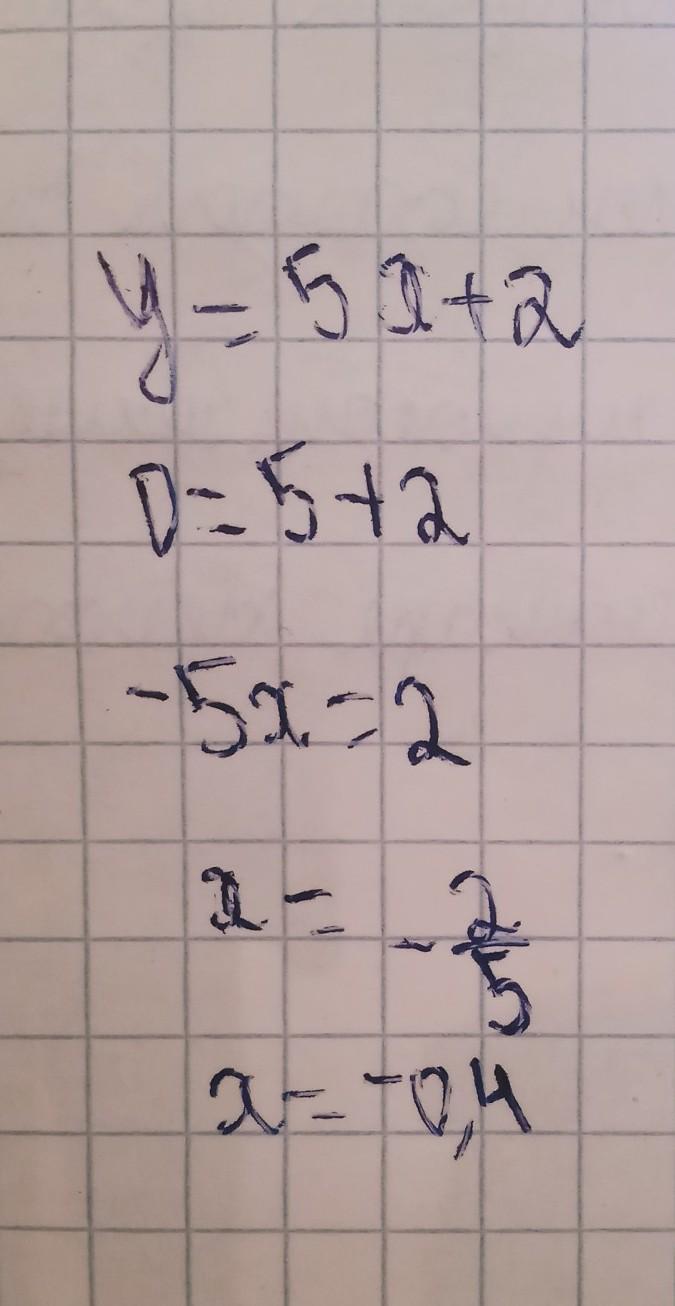 y = 5x+2
0 = 5+2
-5x = 2
x = - 2/5
x = -0,4